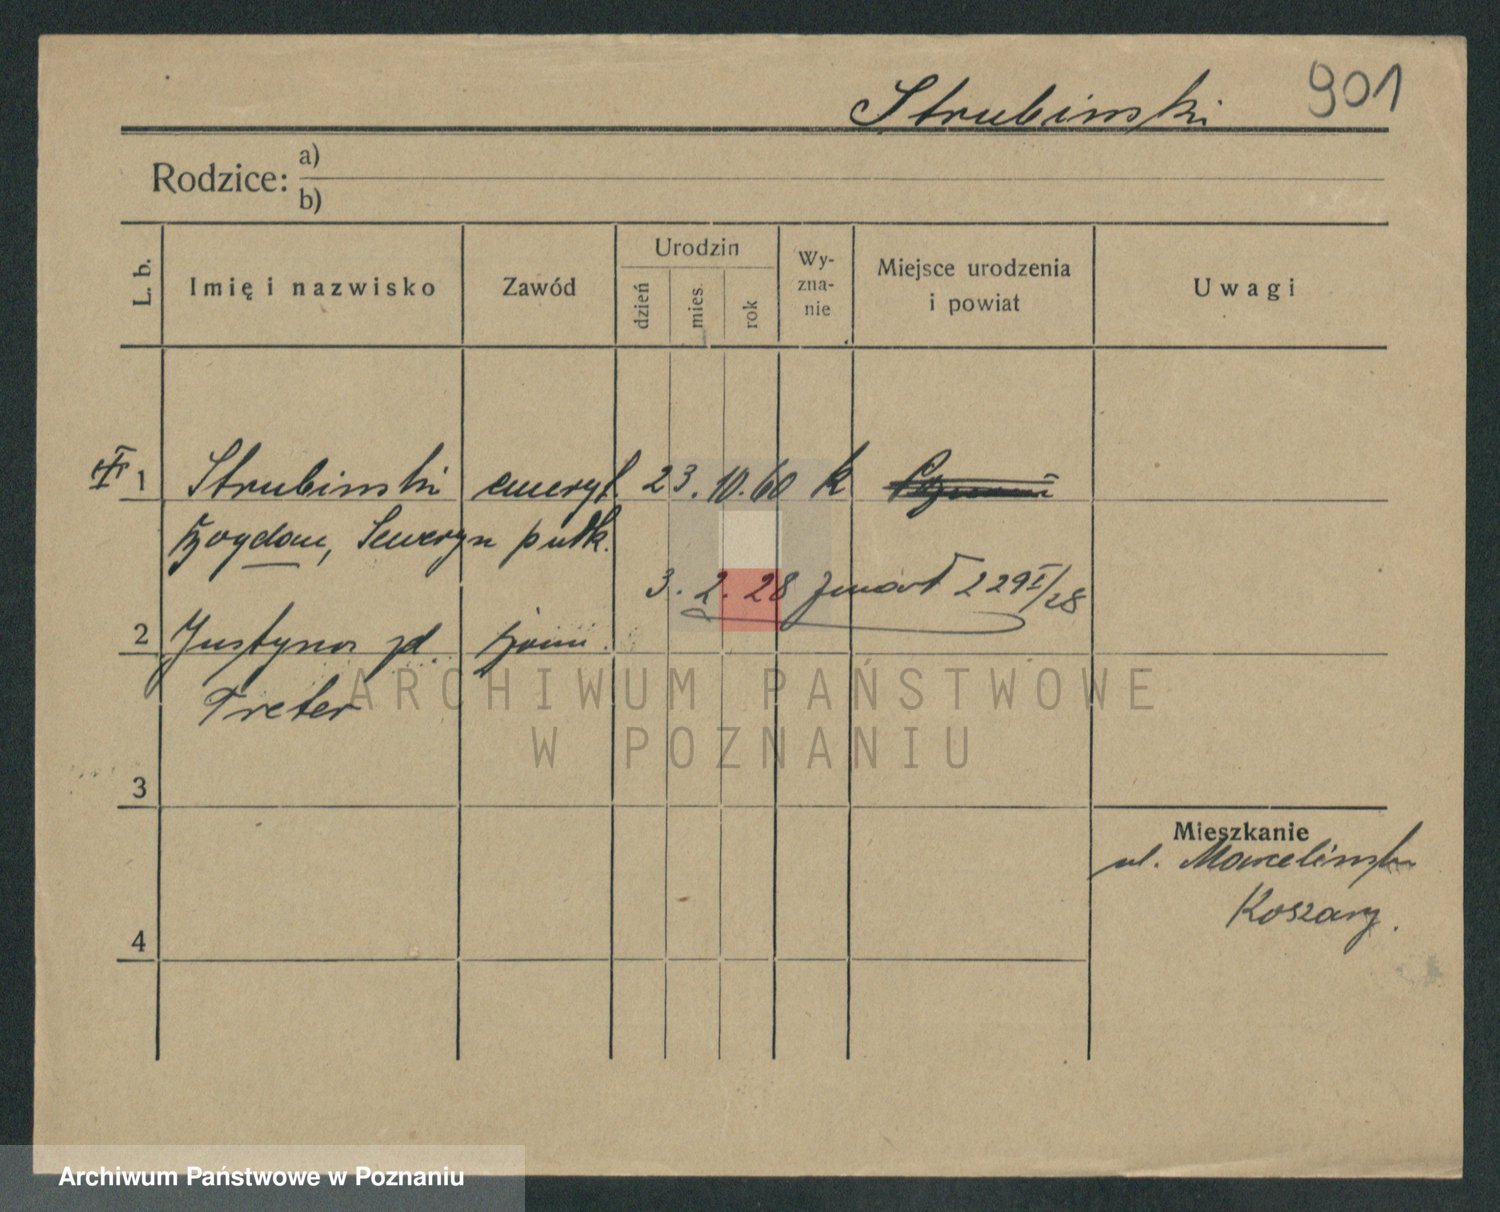 Strubinski 901
Rodzice: a)
b)
L. b. Imię i nazwisko Zawód Urodzin dzień mies. rok Wy-zna-nie Miejsce urodzenia i powiat Uwagi
1 Strubinski emeryt. 23. 10. 60 k
Bogdan, Seweryn pułk.
3. 2. 28 zmarł 229 I/28
2 Justyna zd.
Treter
ARCHIWUM PAŃSTWOWE
W POZNANIU
3
Mieszkanie
ul. Marcelinska
Koszary.
4
Archiwum Państwowe w Poznaniu